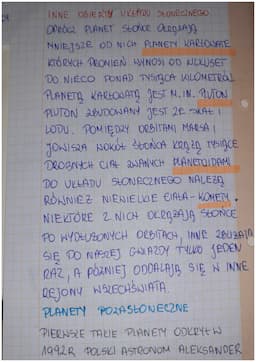 INNE OBIEKTY UKŁADU SŁONECZNEGO
OPRÓCZ PLANET SŁOŃCE OKRĄŻAJĄ
MNIEJSZE OD NICH PLANETY KARŁOWATE
KTÓRYCH PROMIEŃ WYNOSI OD KILKUSET
DO NIECO PONAD TYSIĄCA KILOMETRÓW
PLANETĄ KARŁOWATĄ JEST M.IN. PLUTON
PLUTON ZBUDOWANY JEST ZE SKAŁ I
LODU. POMIĘDZY ORBITAMI MARSA I
JOWISZA WOKÓŁ SŁOŃCA KRĄŻĄ TYSIĄCE
DROBNYCH CIAŁ ZWANYCH PLANETOIDAMI
DO UKŁADU SŁONECZNEGO NALEŻĄ
RÓWNIEŻ NIEWIELKIE CIAŁA - KOMETY.
NIEKTÓRE Z NICH OKRĄŻAJĄ SŁOŃCE
PO WYDŁUŻONYCH ORBITACH, INNE ZBLIŻAJĄ
SIĘ DO NASZEJ GWIAZDY TYLKO JEDEN
RAZ, A PÓŹNIEJ ODDALAJĄ SIĘ W INNE
REJONY WSZECHŚWIATA.
PLANETY POZASŁONECZNE
PIERWSZE TAKIE PLANETY ODKRYŁ W
1992R POLSKI ASTRONOM ALEKSANDER